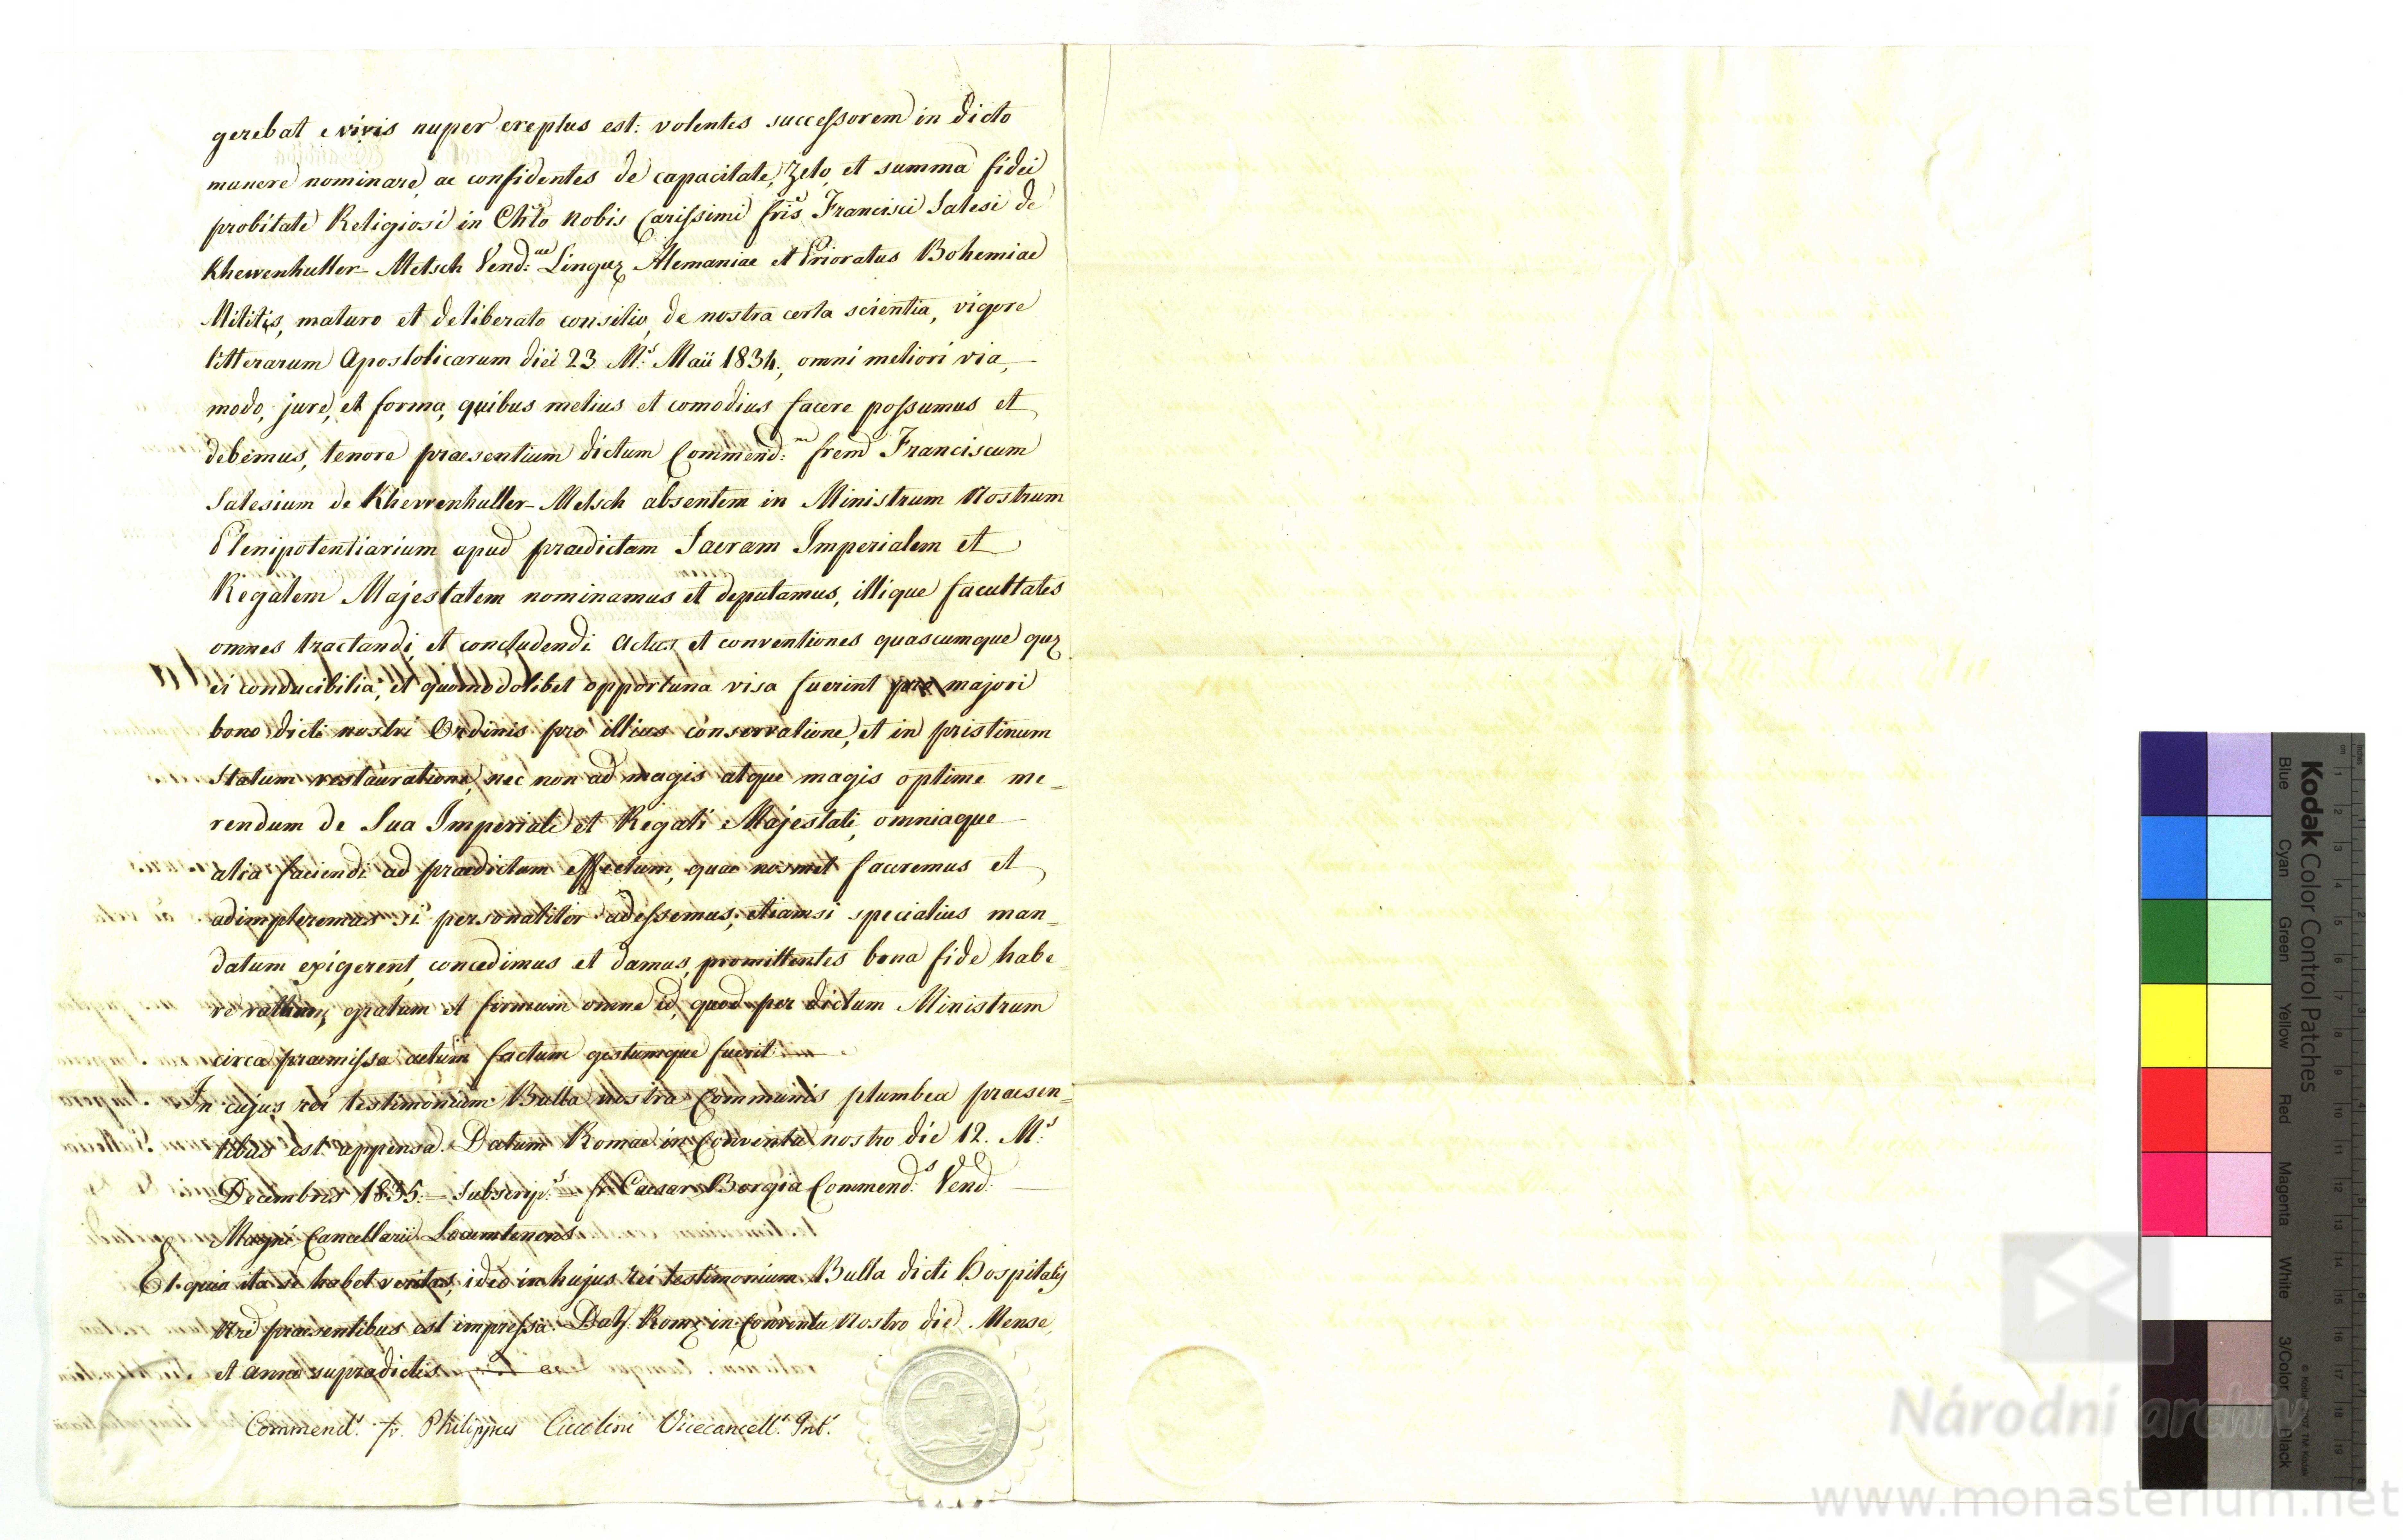 gerebat e vivis nuper ereptus est: volentes successorem in dicto
munere nominare, ac confidentes de capacitate, Zelo, et summa fidei
probitate Religiosi in Chto Nobis Carissimi fris Francisci Salesi de
Khevenhuller-Metsch Vend:ae Linguę Alemaniae et Prioratus Bohemiae
Militis, maturo et deliberato consilio, de nostra certa scientia, vigore
litterarum Apostolicarum diei 23. M:s Maii 1834., omni meliori via,
modo, jure, et forma, quibus melius et comodius facere possumus et
debemus, tenore praesentium dictum Commend:m frem Franciscum
Salesium de Khevenhuller-Metsch absentem in Ministrum Nostrum
Plenipotentiarium apud praedictam Sacram Imperialem et
Regalem Majestatem nominamus et deputamus, illique facultates
omnes tractandi, et concludendi actus et conventiones quascumque quę
ei conducibilia, et quomodolibet opportuna visa fuerint pro majori
bono dicti nostri Ordinis pro illius conservatione, et in pristinum
Statum restauratione, nec non ad magis atque magis optime me=
rendum de Sua Imperiali et Regali Majestati, omniaque
alia faciendi ad praedictum effectum, quae nosmet faceremus et
adimpleremus si personaliter adessemus, etiamsi specialius man=
datum exigerent, concedimus et damus, promittentes bona fide habe=
re ratum, gratum et firmum omne id, quod per dictum Ministrum
circa praemissa actum factum gestumque fuerit
In cujus rei testimonium Bulla nostra Communis plumbea praesen=
tibus est appensa. Datum Romae in Conventu nostro die 12. M:s
Decembris 1835. - Subscrip:s - fr Caesar Borgia Commend:s Vend:
Magni Cancellarii Locumtenens
Et quia ita se habet veritas, ideo in hujus rei testimonium Bulla dicti Hospitalis
Nrę praesentibus est impressa. Datę Romę in Conventu Nostro die Mense,
et anno supradictis
Commend:r fr. Philippus Ciccolini Vicecancell:s Int:s
Kodak Color Control Patches
Blue Cyan Green Yellow Red Magenta White 3/Color Black
Národní archiv
www.monasterium.net